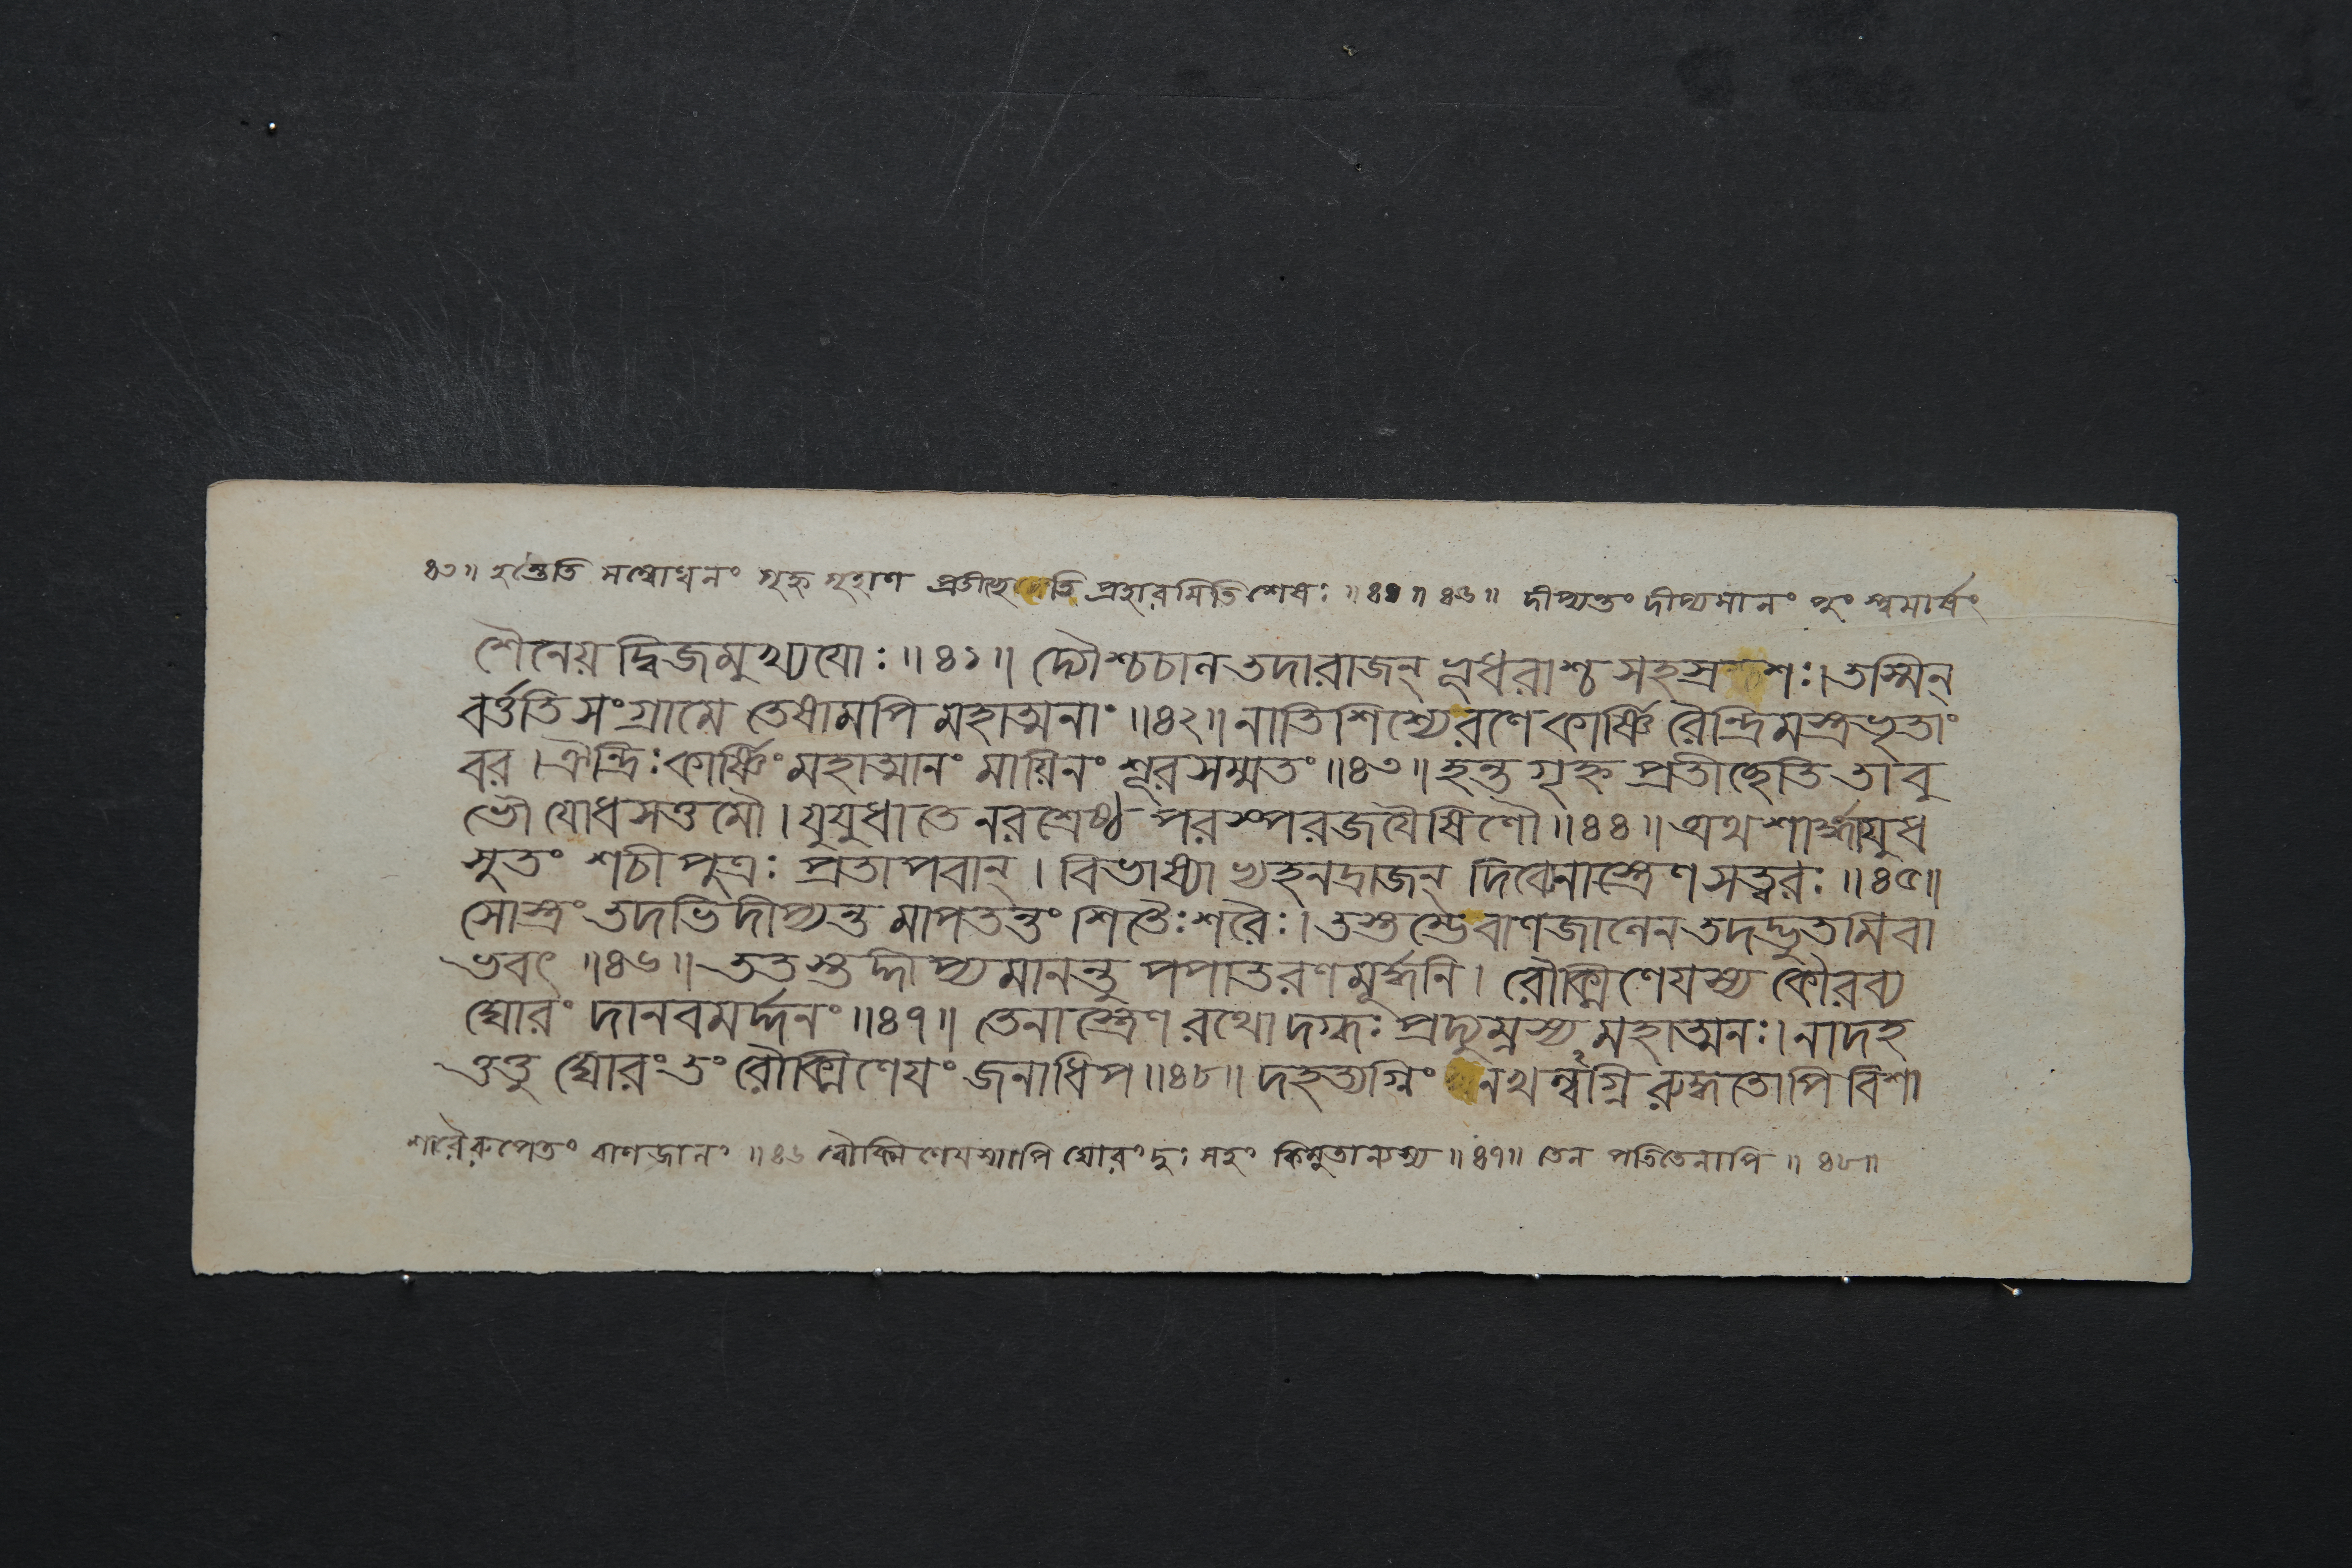 ৪৩॥ হন্তেতি সম্বোধনং গৃহ্ন গৃহাণ প্রতীচ্ছেতি প্রহারমিতি শেষঃ ॥৪৪॥ ৪৬॥ দীপ্যন্তং দীপ্যমানং পুংস্ত্বমার্ষং
শৈনেয়দ্বিজমুখ্যযোঃ ॥৪১॥ দ্যৌশ্চচাল তদা রাজন্ ভূধরাশ্চ সহস্রশঃ। তস্মিন্
বর্ত্ততি সংগ্রামে তেষামপি মহাত্মনাং ॥৪২॥ নাতিশিশ্যে রণে কার্ষ্ণি রৈন্দ্রিমস্ত্রভৃতাং
বর। ঐন্দ্রিঃ কার্ষ্ণিং মহাত্মানং মায়িনং শূরসম্মতং ॥৪৩॥ হন্ত গৃহ্ন প্রতীচ্ছেতি তাবু
ভৌ যোধসত্তমৌ। যুযুধাতে নরশ্রেষ্ঠ পরস্পরজযৈষিণৌ ॥৪৪॥ অথ শার্ঙ্গাযুধ
সুতং শচীপুত্রঃ প্রতাপবান্। বিভাষ্যাভ্যহনদ্রাজন্ দিব্যেনাস্ত্রেণ সত্ত্বরঃ ॥৪৫॥
সোস্ত্রং তদভিদীপ্যন্ত মাপতন্তং শিতৈঃ শরৈঃ। তস্তম্ভে বাণজালেন তদদ্ভুতমিবা
ভবৎ ॥৪৬॥ ততস্তুদ্দীপ্যমানন্তু পপাত রণমূর্দ্ধনি। রৌক্মিণেযস্য কৌরব্য
ঘোরং দানবমর্দ্দনং ॥৪৭॥ তেনাস্ত্রেণ রথো দগ্ধঃ প্রদ্যুম্নস্য মহাত্মনঃ। নাদহ
ত্তত্তু ঘোরং তং রৌক্মিণেযং জনাধিপ ॥৪৮॥ দহত্যগ্নিং নখল্বগ্নি রুদ্ধতোপি বিশা
শরৈরুপেতং বাণজালং ॥৪৬ রৌক্মিণেযস্যাপি ঘোরং দুঃসহং কিমুতান্যস্য ॥৪৭॥ তেন পতিতেনাপি ॥৪৮॥